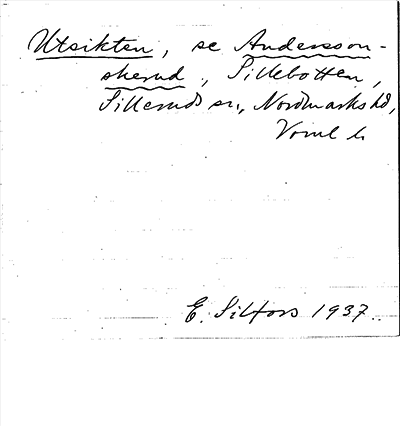 Utsikten, se Andersson-
skerud, Sillebotten,
Silleruds sn, Nordmarks hd,
Vrml l.
E. Silfors 1937.